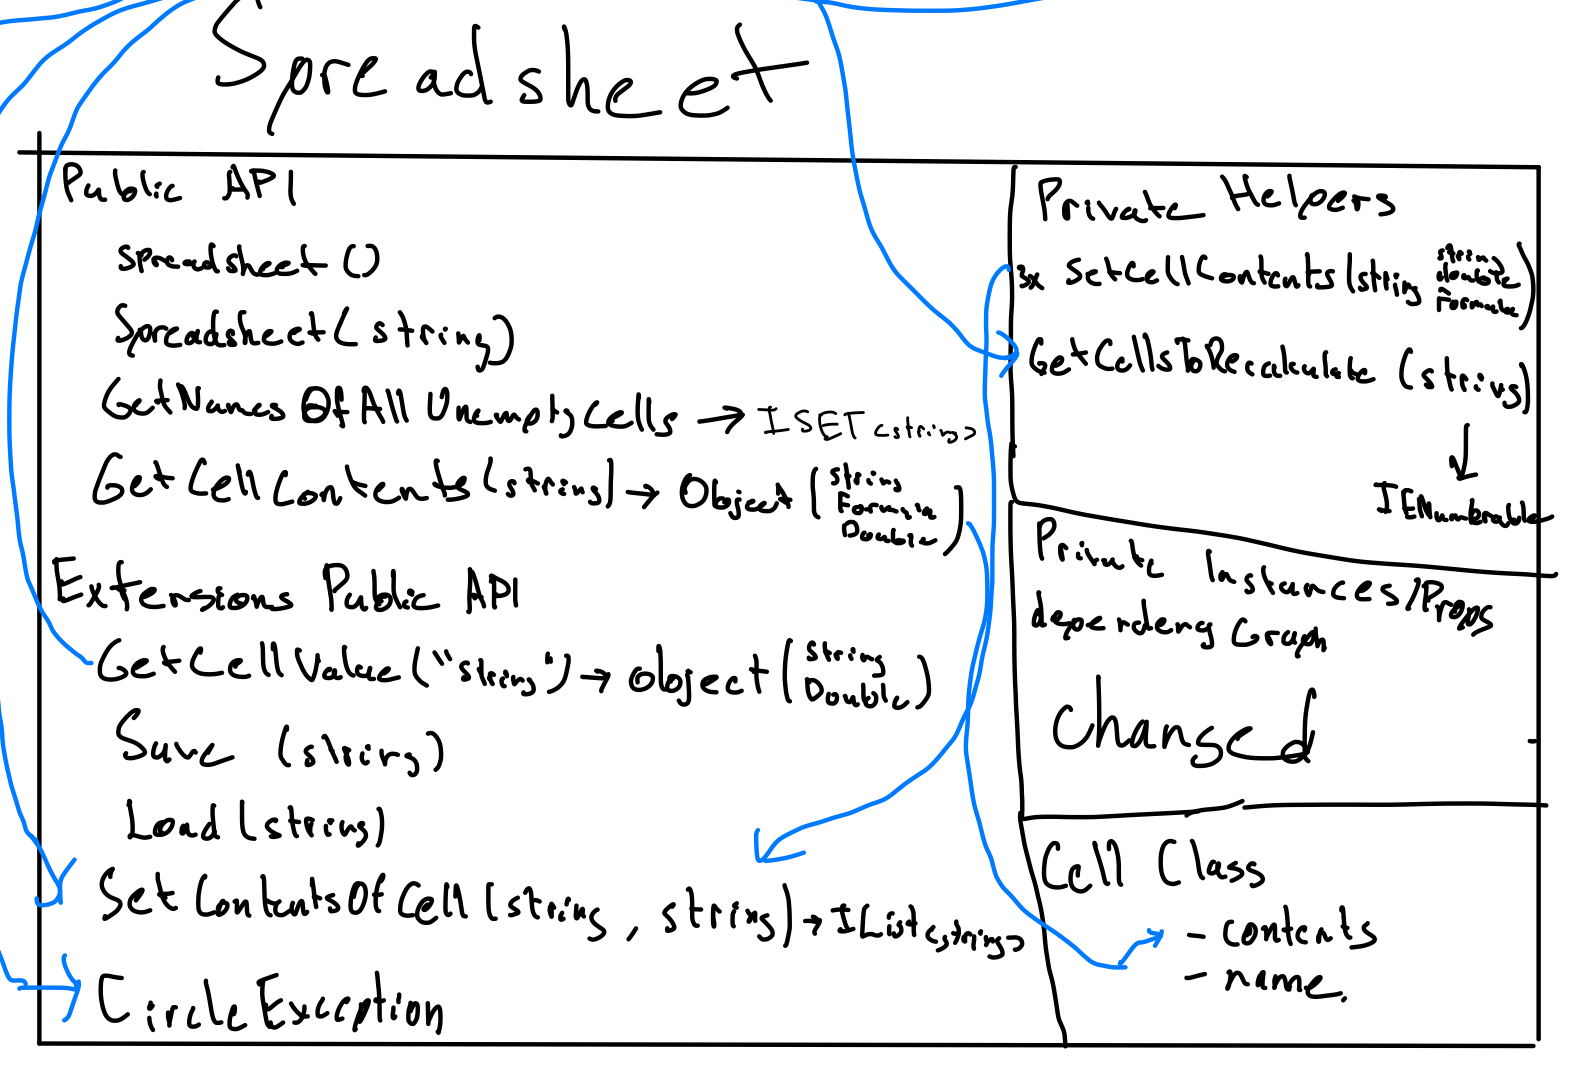 Spreadsheet
Public API
Spreadsheet ()
Spreadsheet(string)
GetNames Of All Unempty Cells → ISET<string>
Get Cell Contents (string) → Object (String
Formula
Double)
Extensions Public API
GetCellValue("string") → Object (String
Double)
Save (string)
Load (string)
Set ContentsOf Cell (string, string) → IList<string>
Circle Exception
Private Helpers
3x SetCellContents (string string
double
Formula)
GetCellsToRecalculate (string)
↓
IENumbrable
Private Instances/Props
dependency Graph
Changed
Cell Class
- contents
- name.